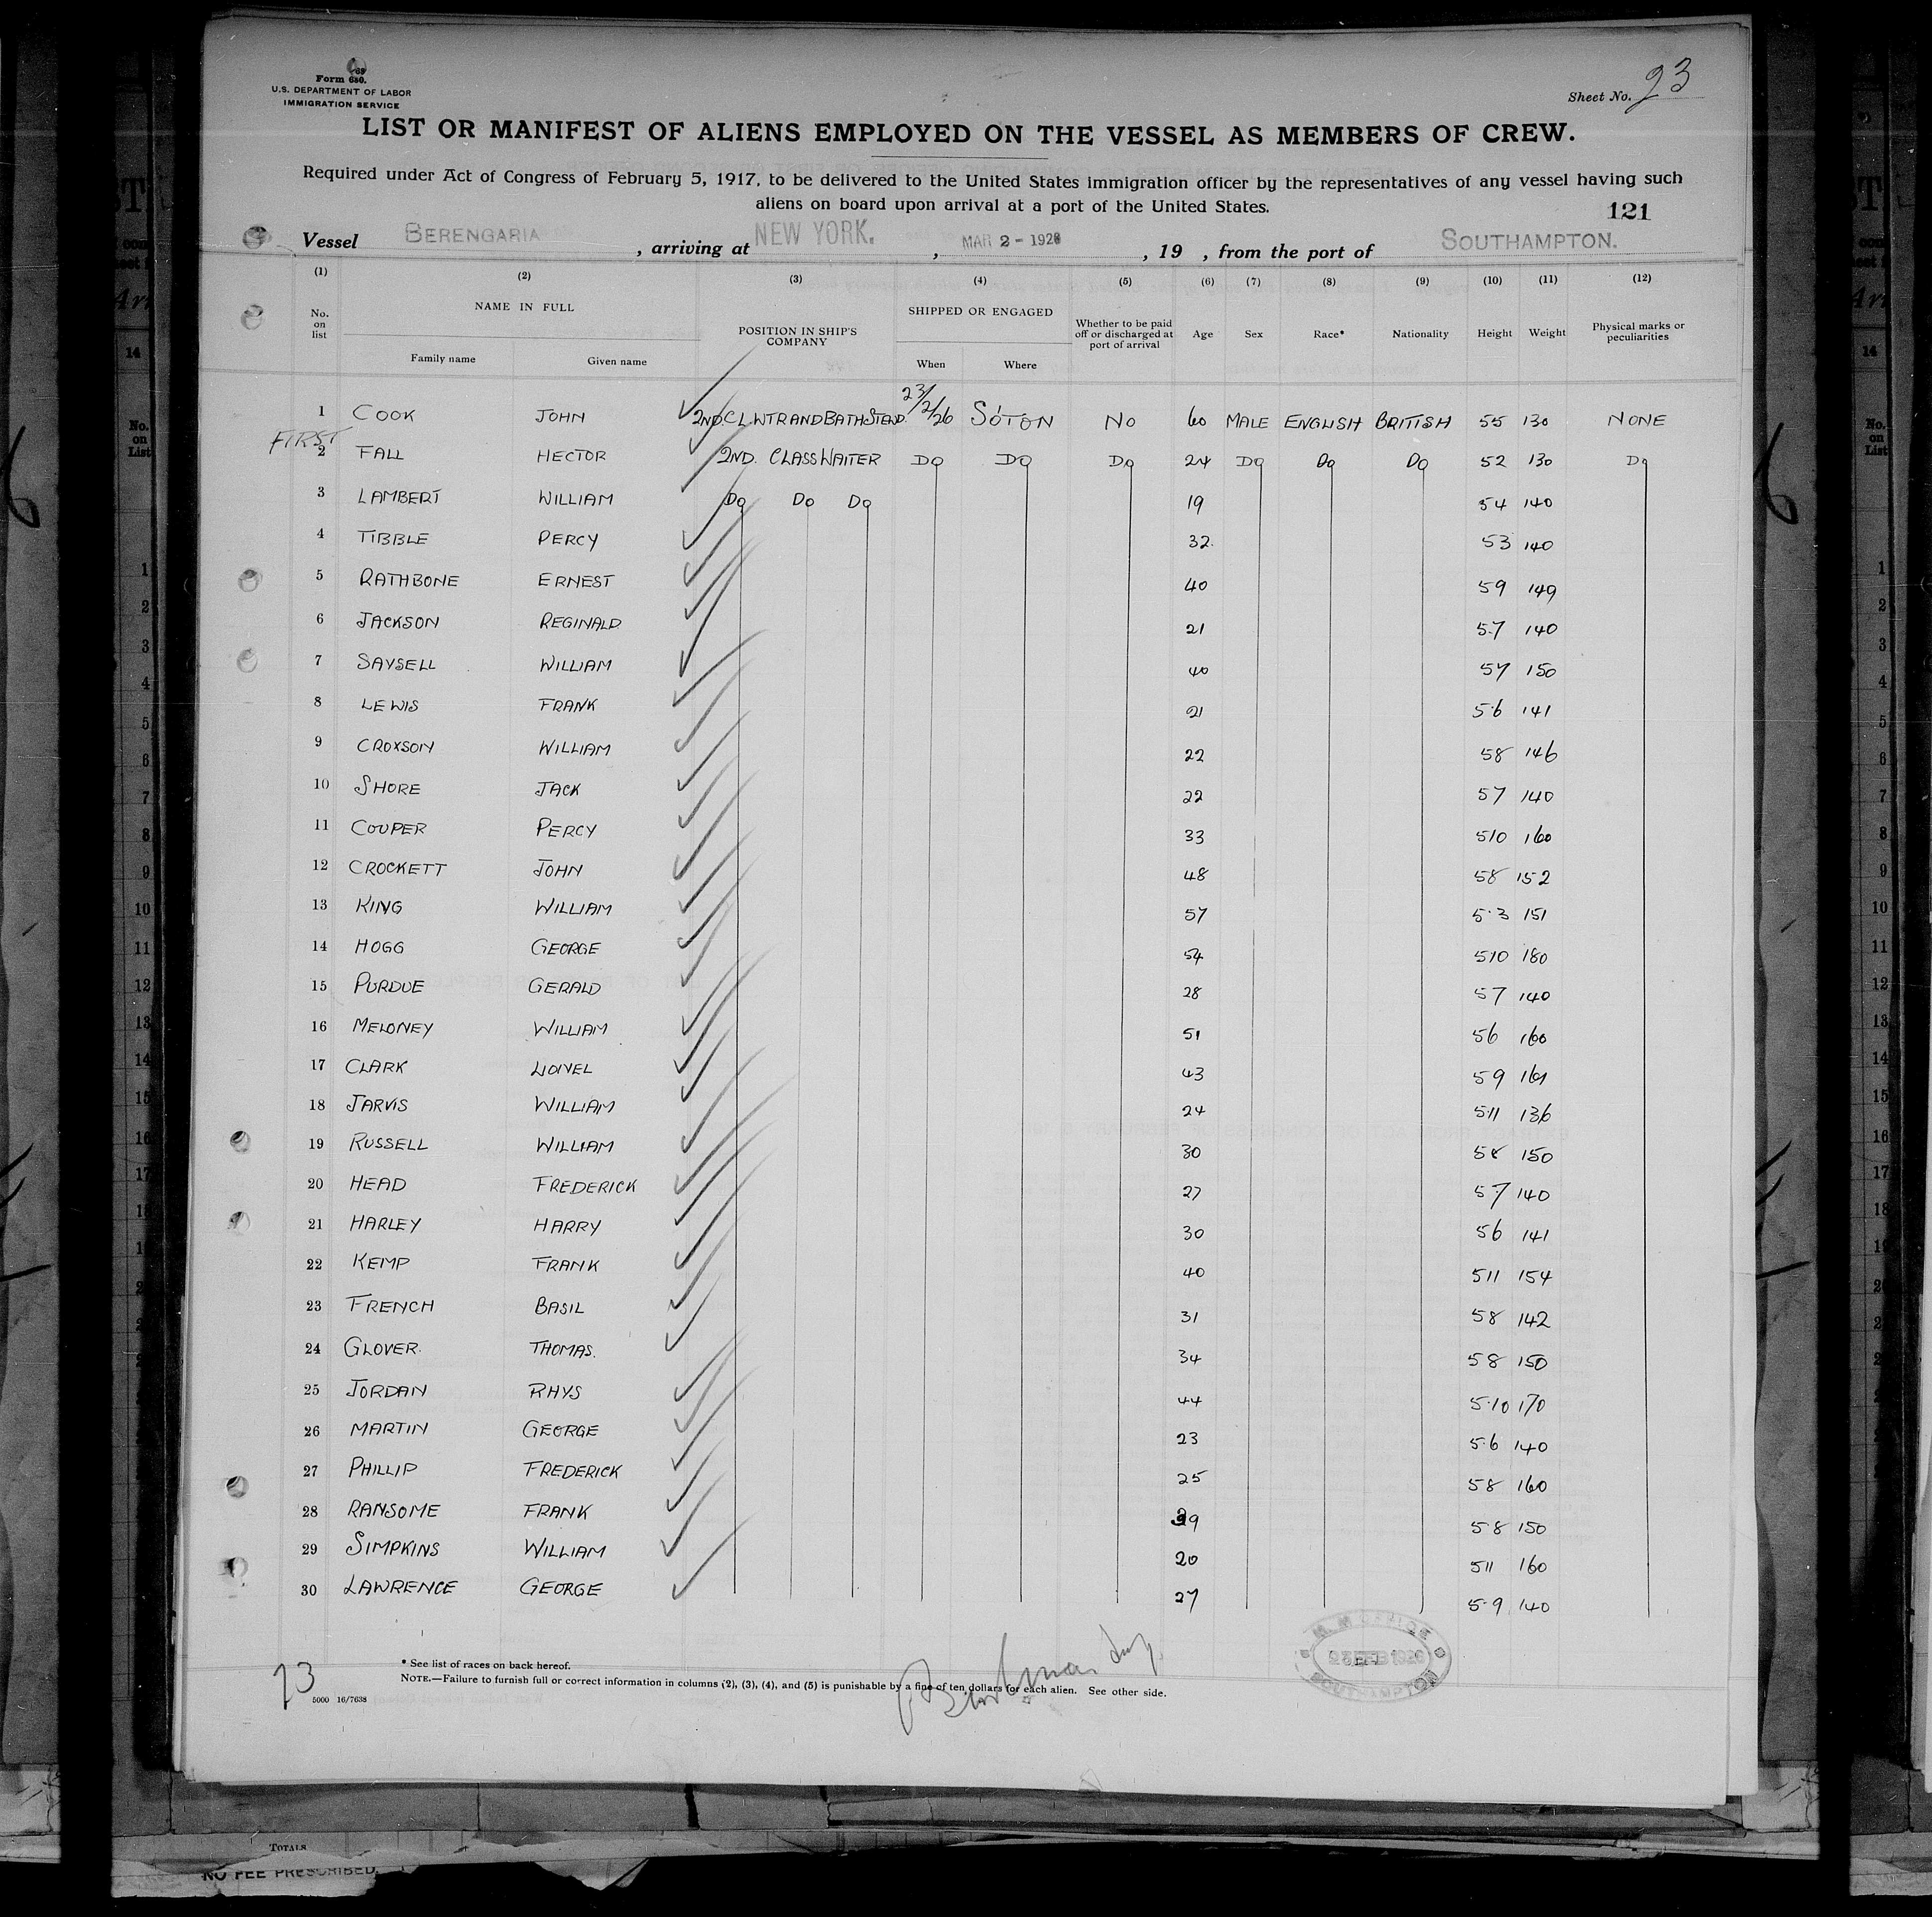 Form 680.
U.S. DEPARTMENT OF LABOR
IMMIGRATION SERVICE
Sheet No. 23
LIST OR MANIFEST OF ALIENS EMPLOYED ON THE VESSEL AS MEMBERS OF CREW.
Required under Act of Congress of February 5, 1917, to be delivered to the United States immigration officer by the representatives of any vessel having such
aliens on board upon arrival at a port of the United States.
121
Vessel BERENGARIA, arriving at NEW YORK., MAR 2 - 1926, 19 , from the port of SOUTHAMPTON.
(1) (2) (3) (4) (5) (6) (7) (8) (9) (10) (11) (12)
No. on list NAME IN FULL Family name Given name POSITION IN SHIP'S COMPANY SHIPPED OR ENGAGED When Where Whether to be paid off or discharged at port of arrival Age Sex Race* Nationality Height Weight Physical marks or peculiarities
1 COOK JOHN 2ND.CL.WTR AND BATH STEWD. 23/2/26 SO'TON NO 60 MALE ENGLISH BRITISH 55 130 NONE
FIRST
2 FALL HECTOR 2ND. CLASS WAITER DO DO DO 24 DO DO DO 52 130 DO
3 LAMBERT WILLIAM DO DO DO 19 54 140
4 TIBBLE PERCY 32. 53 140
5 RATHBONE ERNEST 40 59 149
6 JACKSON REGINALD 21 5.7 140
7 SAYSELL WILLIAM 40 57 150
8 LEWIS FRANK 21 56 141
9 CROXSON WILLIAM 22 58 146
10 SHORE JACK 22 57 140
11 COUPER PERCY 33 510 160
12 CROCKETT JOHN 48 58 152
13 KING WILLIAM 57 5.3 151
14 HOGG GEORGE 54 510 180
15 PURDUE GERALD 28 57 140
16 MELONEY WILLIAM 51 56 160
17 CLARK LIONEL 43 59 161
18 JARVIS WILLIAM 24 511 136
19 RUSSELL WILLIAM 30 58 150
20 HEAD FREDERICK 27 57 140
21 HARLEY HARRY 30 56 141
22 KEMP FRANK 40 511 154
23 FRENCH BASIL 31 58 142
24 GLOVER. THOMAS. 34 58 150
25 JORDAN RHYS 44 5.10 170
26 MARTIN GEORGE 23 5.6 140
27 PHILLIP FREDERICK 25 58 160
28 RANSOME FRANK 58 150
29 SIMPKINS WILLIAM 20 511 160
30 LAWRENCE GEORGE 27 5.9 140
* See list of races on back hereof.
NOTE.—Failure to furnish full or correct information in columns (2), (3), (4), and (5) is punishable by a fine of ten dollars for each alien. See other side.
23
5000 16/7638
M. M. OFFICE
SOUTHAMPTON
TOTALS
NO FEE PRESCRIBED.